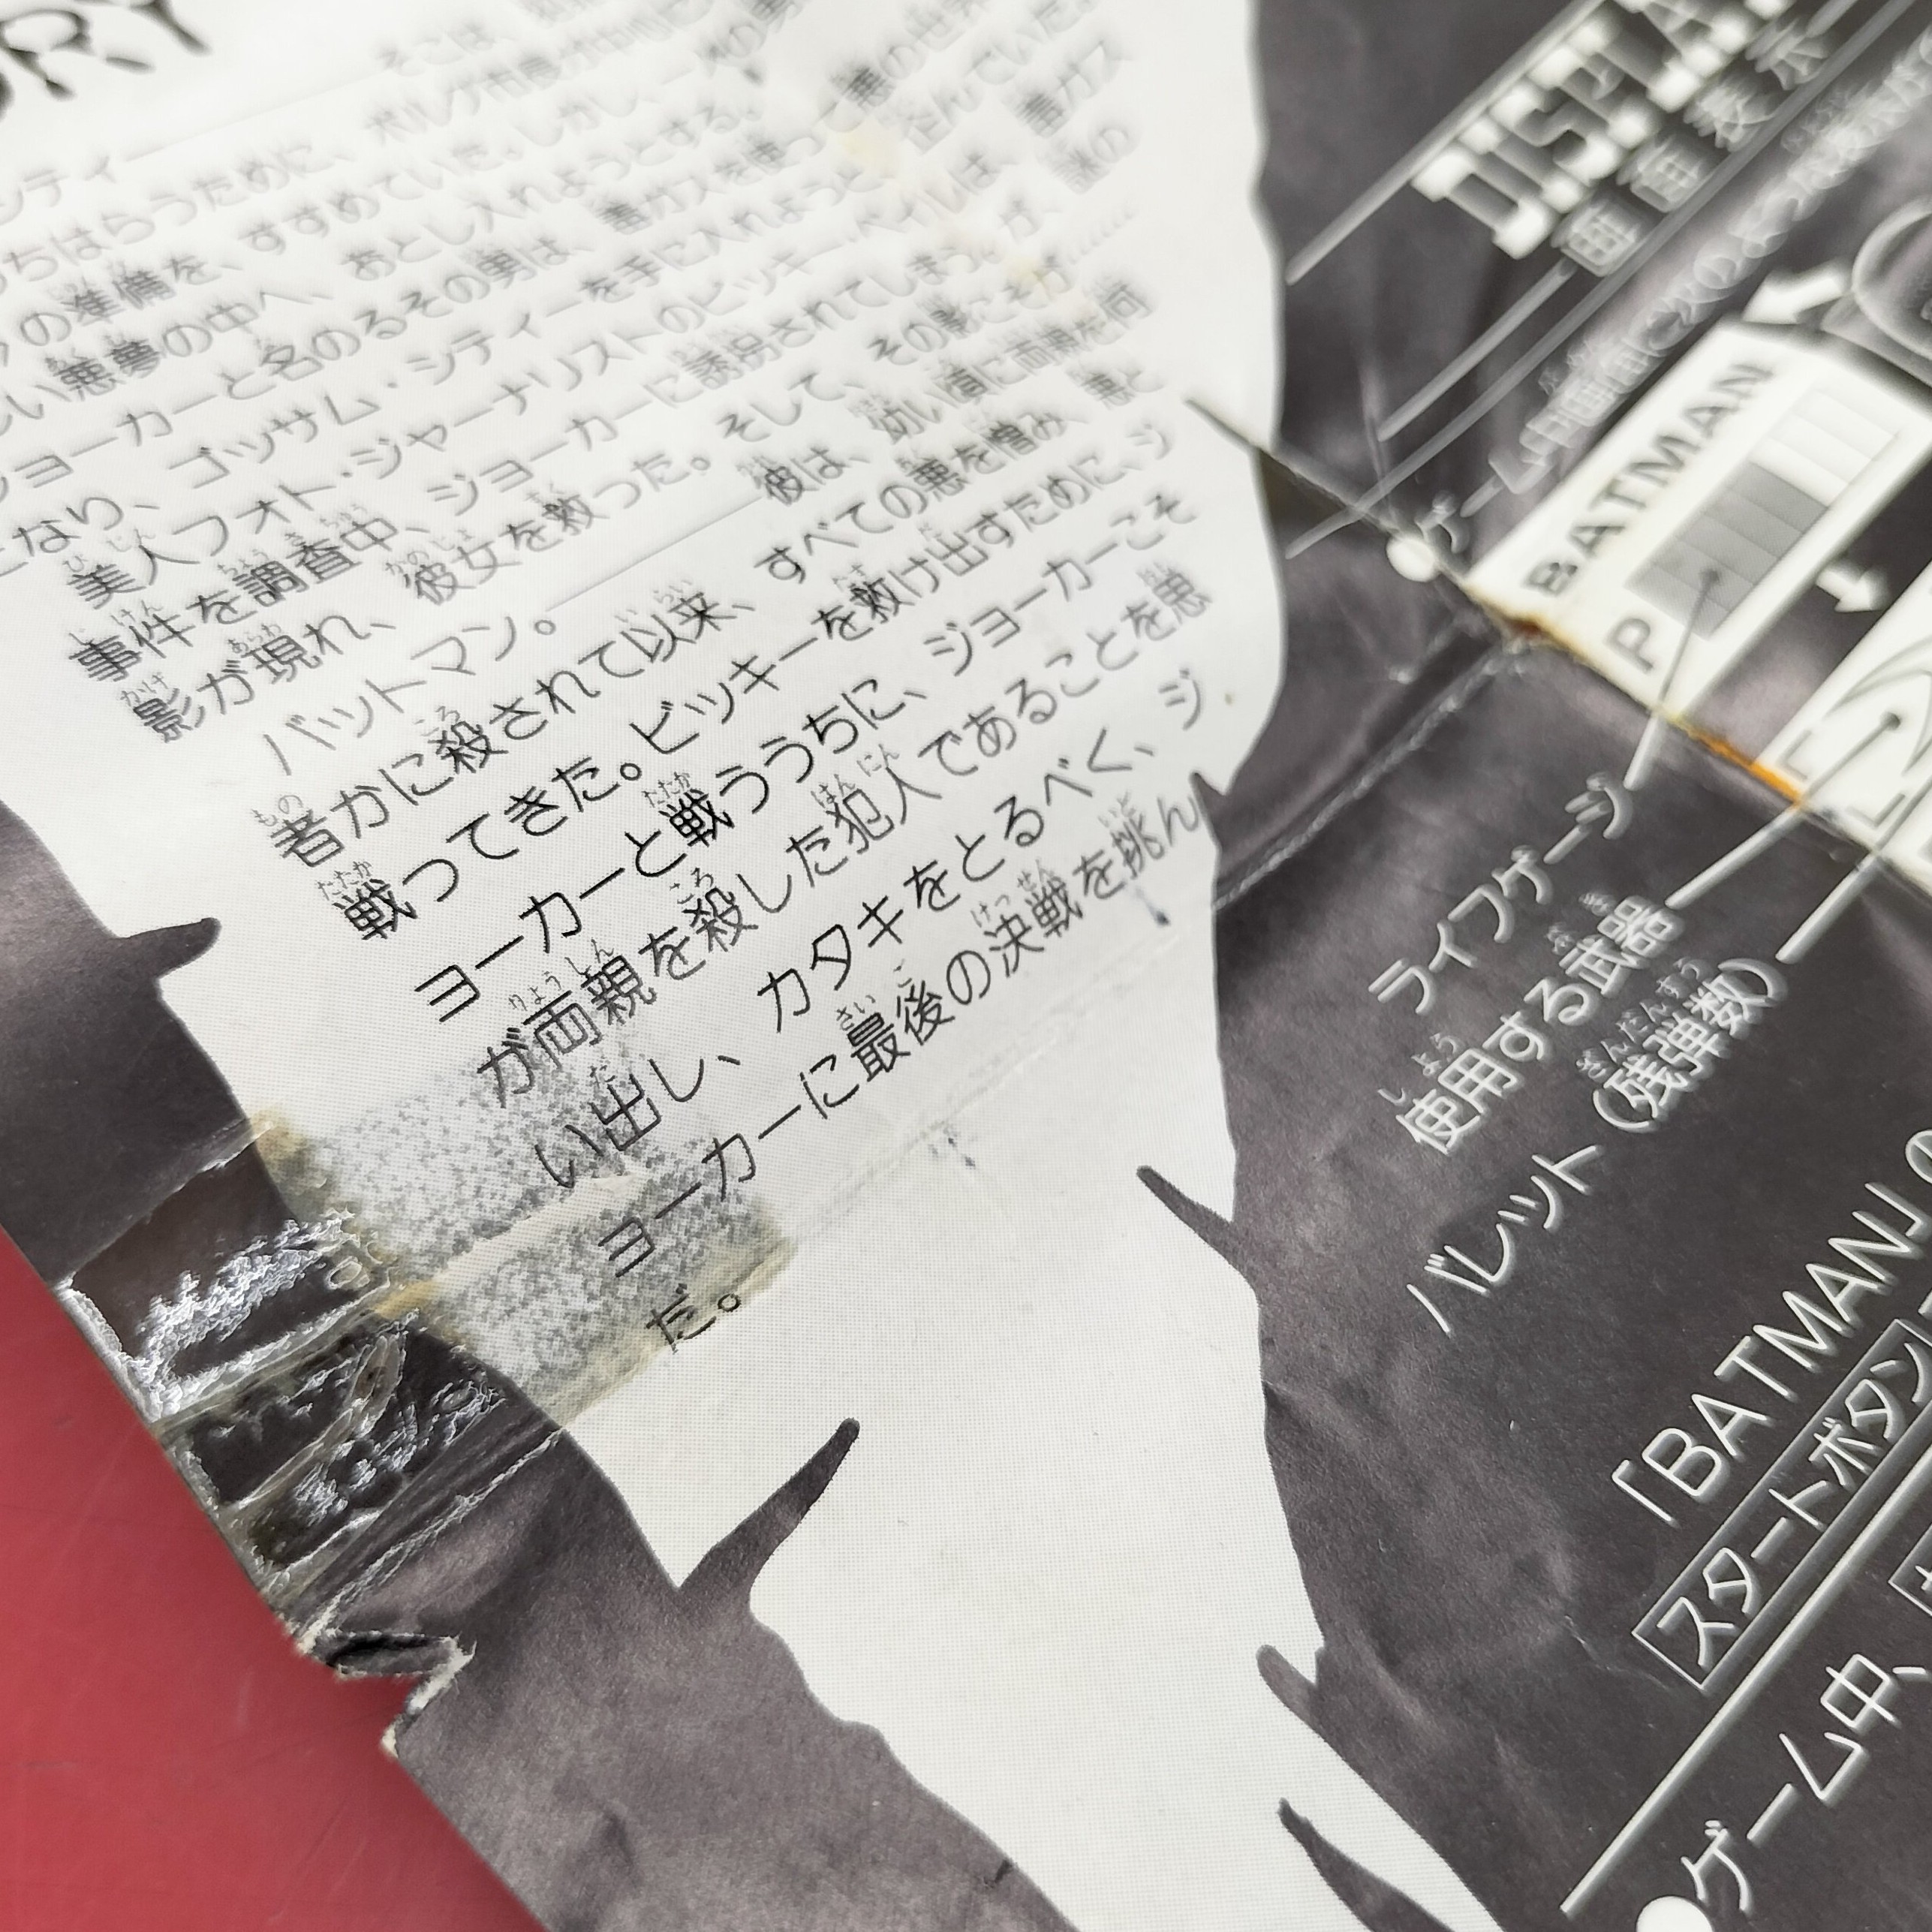 ORY
そこは、
シティ
ちはらうために、ボルグ市長が中心に
の準備を、すすめていた。しかし、一人の男
しい悪夢の中へ、おとし入れようとする。
ジョーカーと名のるその男は、毒ガスを使って悪の世界
となり、ゴッサム・シティーを手に入れようと企んでいた。
美人フォト・ジャーナリストのビッキー・ベイルは、毒ガス
事件を調査中、ジョーカーに誘拐されてしまう。が、謎の
影が現れ、彼女を救った。そして、その影こそが……
バットマン。――彼は、幼い頃に両親を何
者かに殺されて以来、すべての悪を憎み、悪と
戦ってきた。ビッキーを救け出すために、ジ
ョーカーと戦ううちに、ジョーカーこそ
が両親を殺した犯人であることを思
い出し、カタキをとるべく、ジ
ョーカーに最後の決戦を挑ん
だ。
DISPLA
画面表示
ゲーム中画面に次のような表示が
BATMAN
P
ライフゲージ
使用する武器
バレット(残弾数)
「BATMAN」の
スタートボタン
●ゲーム中、